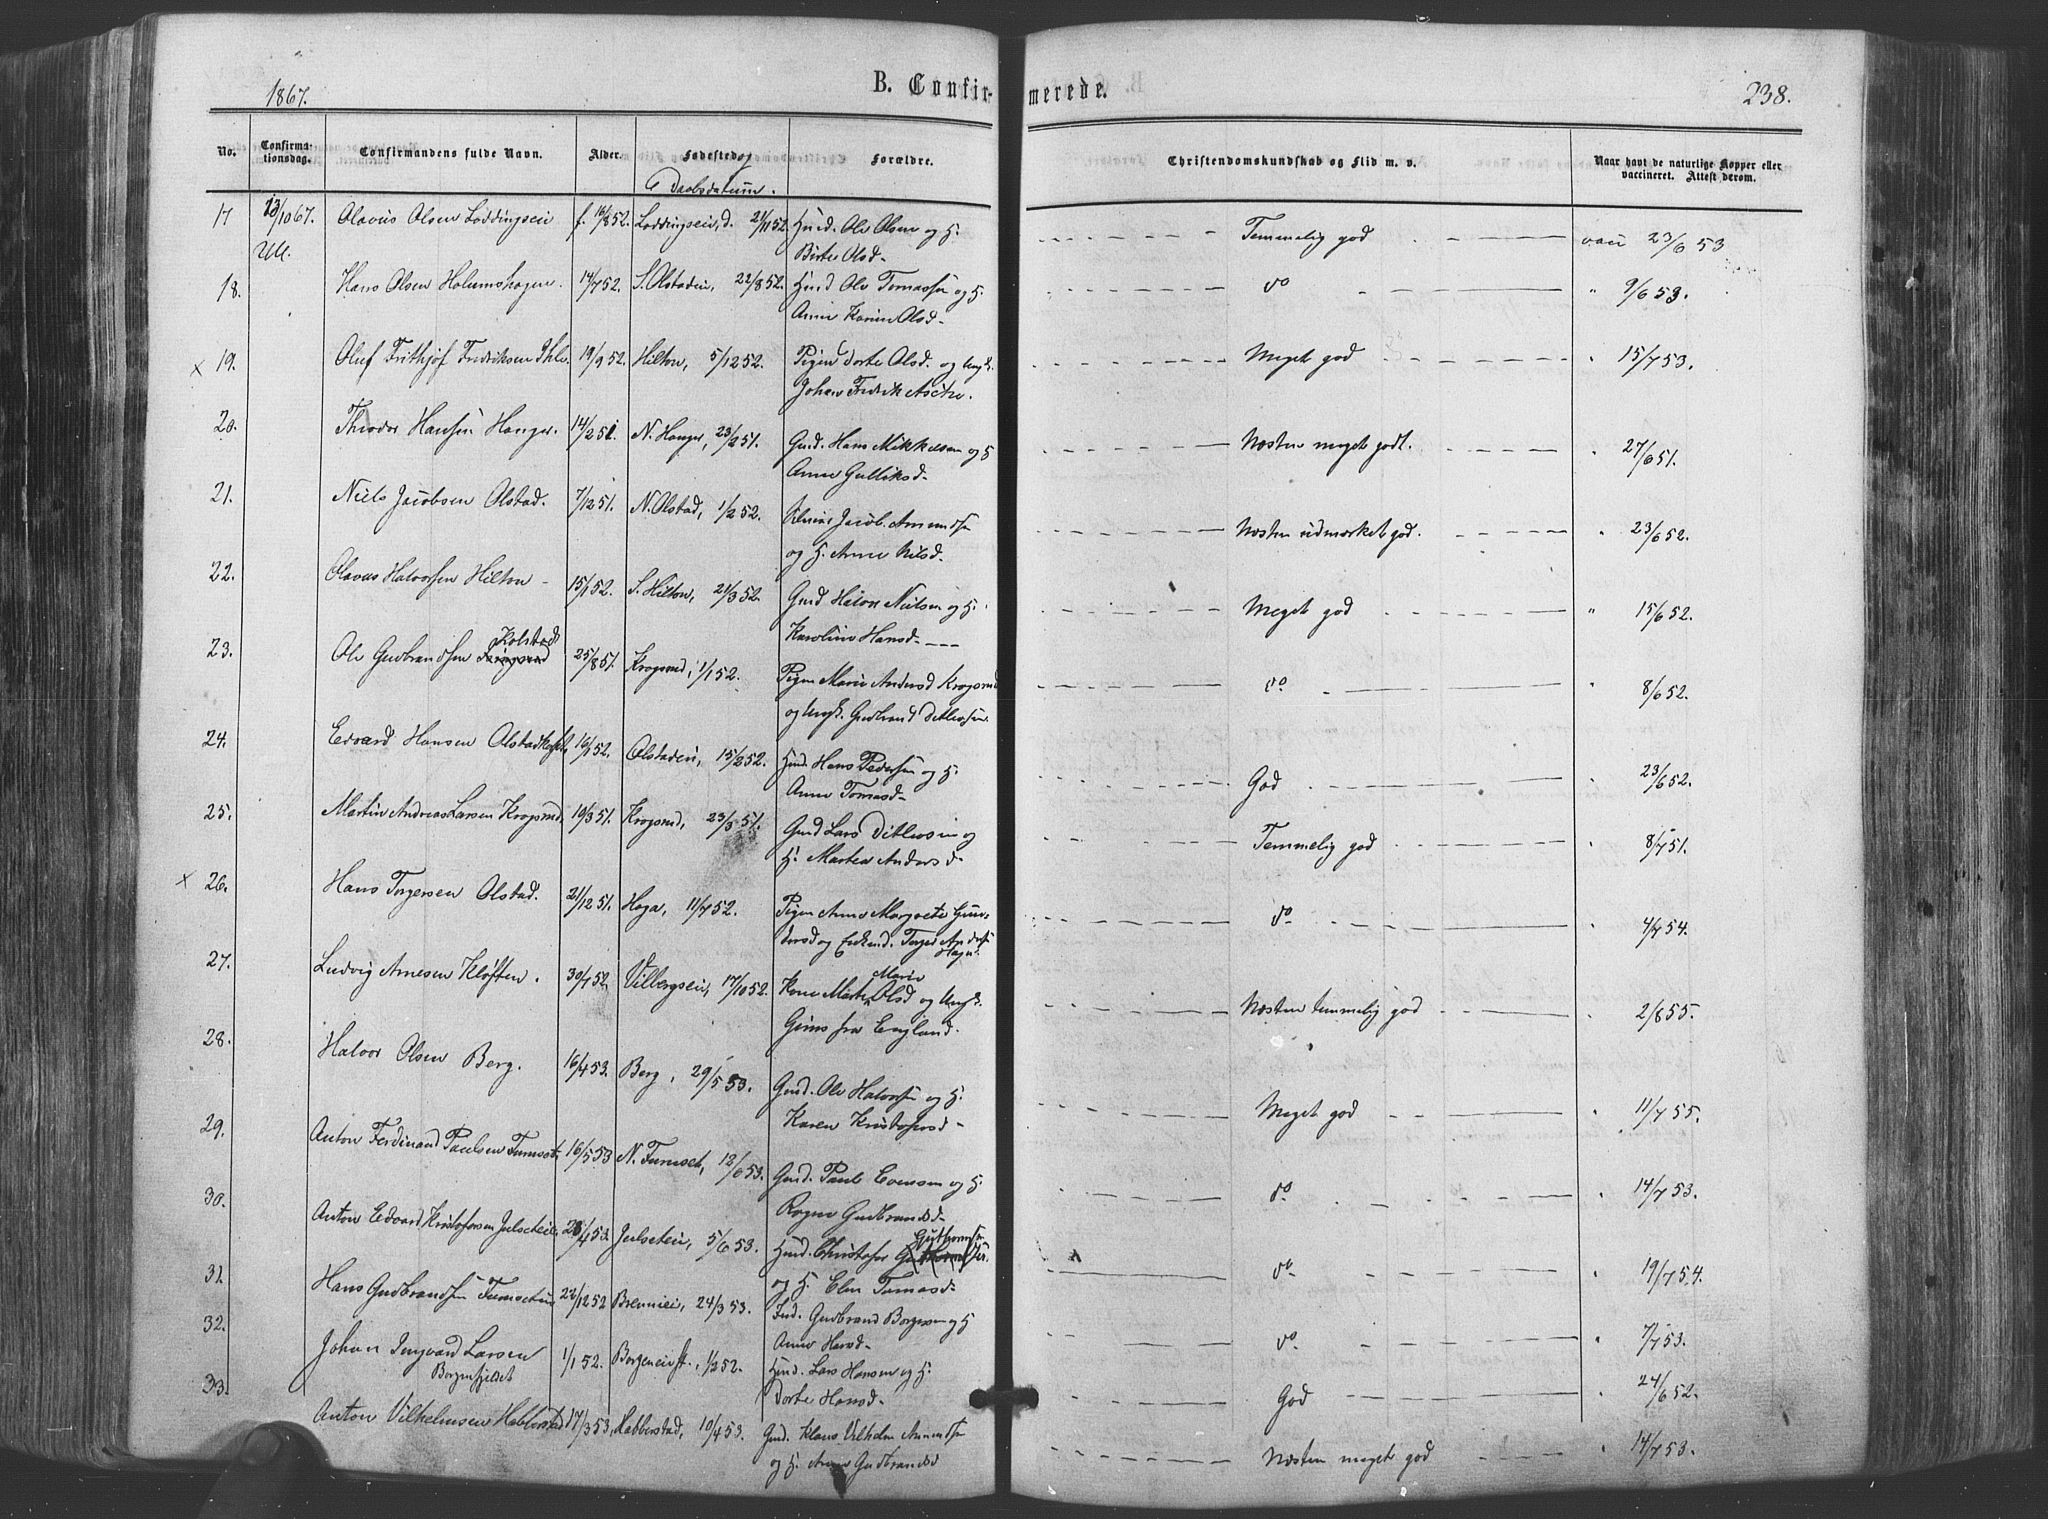 1867.
B. Confir-
merede.
238.
No.
Confirma-
tionsdag.
Confirmandens fulde Navn.
Alder.
Fødested og
Daabsdatum.
Forældre.
Christendomskundskab og Flid m. v.
Naar havt de naturlige Kopper eller
vaccineret. Attest derom.
17 13/10 67. Olavus Olsen Loddingseie f. 16/8 52. Loddingseie, d. 21/11 52. Husd. Ole Olsen og H. Temmelig god vacc 23/6 53
Birte Olsd.
18. Hans Olsen Holumshagen. 14/7 52. S. Olstadeie, 22/8 52. Husd Ole Tomassen og H. do " 9/6 53.
Anne Karine Olsd.
x 19. Oluf Frithjof Fredriksen 19/9 52. Hilton, 5/12 52. Pigen Dorte Olsd. og Ungk. Meget god " 15/7 53.
Johan Fredrik
20. Theodor Hansen Hauger. 14/2 51. N. Hauger, 23/2 51. Gaud. Hans Mikkelsen og H Næsten meget godt. " 27/6 51.
Anne Gulliksd.
21. Niels Jacobsen Olstad. 7/12 51. N. Olstad, 1/2 52. Jacob Amundsen Næsten udmærket god. " 23/6 52.
og H. Anne Nilsd.
22. Olavus Halvorsen Hilton 15/1 52. S. Hilton, 21/3 52. Gaud Halvor Nielsen og H. Meget god " 15/6 52.
Karoline Hansd.
23. Ole Gudbrandsen Kolstad 25/8 51. Krogsrud, 1/1 52. Pigen Marie Andersd Krogsrud do " 8/6 52.
og Ungk. Gudbrand Ditlevsen.
24. Edvard Hansen 16/1 52. Olstadeie, 15/2 52. Husd. Hans Pedersen og H. God 23/6 52.
Anne Tomasd.
25. Martin Andreas Larsen Krogsrud 19/3 51. Krogsrud, 23/3 51. Gaud Lars Ditlevsen og Temmelig god " 8/7 51.
H. Martea Andersd.
x 26. Hans Torgersen Olstad. 21/12 51. Haga, 11/7 52. Pigen Anne Margrete Gun- do " 4/7 54.
dersd og Enkmd. Torger Andersen
Haga.
27. Ludvig Arnesen Kløften. 30/7 52. Vilbergseie, 17/10 52. Kone Marte Marie Olsd og Ungk. Næsten temmelig god 2/8 55.
Gims fra England.
28. Halvor Olsen Berg. 16/4 53. Berg, 29/5 53. Gaud. Ole Halvorsen og H. Meget god " 11/7 55.
Karen Kristofersd.
29. Anton Ferdinand Paulsen Furuset, 16/5 53 N. Furuset, 12/6 53. Gaud. Paul Evensen og H. do " 14/7 53.
Ragne Gudbrandsd.
30. Anton Edvard Kristofersen Julseteie, 28/4 53. Julseteie, 5/6 53. Husd. Christofer Guthormsen do " 19/7 54.
og H. Elen Tomasd.
31. Hans Gudbrandsen Furuseteie 22/12 52 Brennieie, 24/3 53. Gudbrand Borgersen og H do " 7/7 53.
Anne Hansd.
32. Johan Ingvard Larsen 1/1 52. 1/2 52. Husd. Lars Hansen og H. God 24/6 52.
Borgenfjeldet
Dorte Hansd.
33. Anton Vilhelmsen Habberstad 17/3 53, Habberstad, 10/4 53. Gaud. Klaus Vilhelm Amundsen Næsten meget god " 14/7 53.
og H. Anne Gudbrandsd